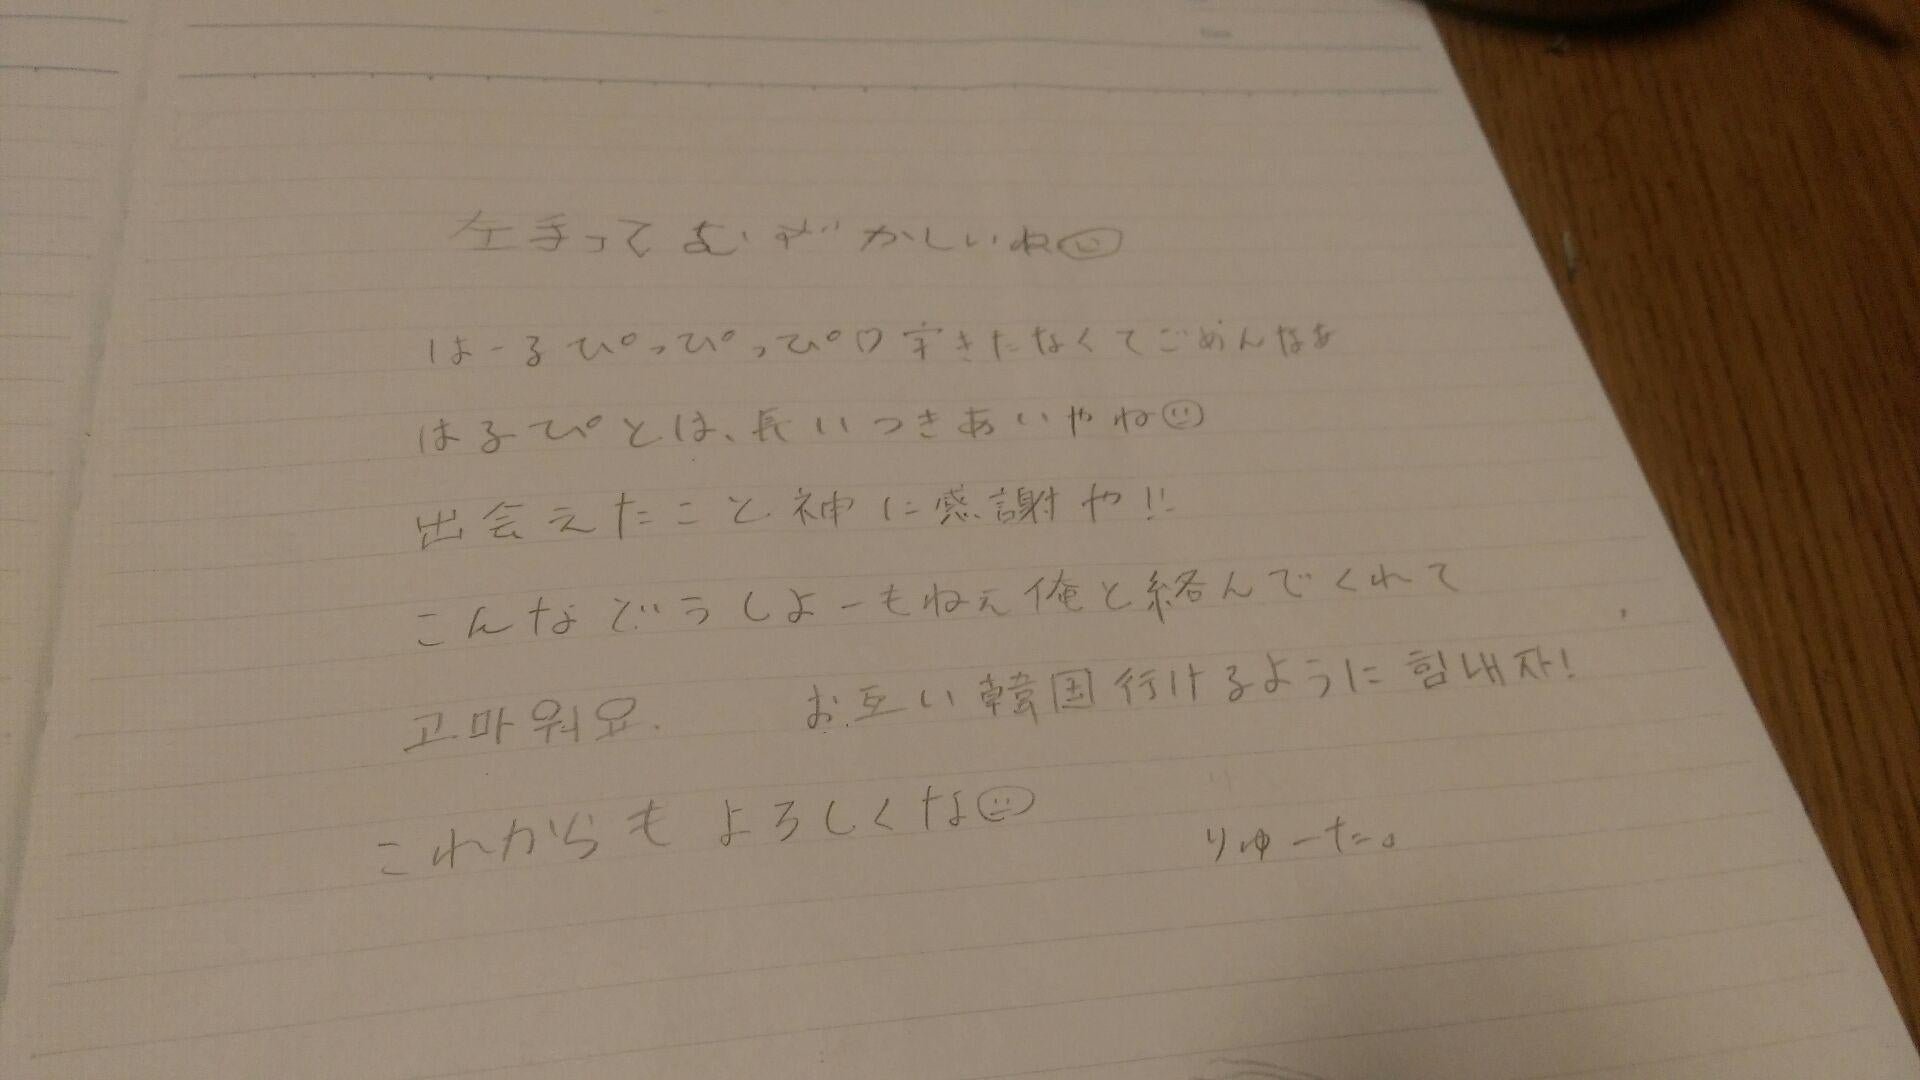 左手ってむずかしいね☺
はーるぴっぴっぴ♡字きたなくてごめんなぁ
はるぴとは、長いつきあいやね☺
出会えたこと神に感謝や!!
こんなどうしよーもねぇ俺と絡んでくれて
고마워요. お互い韓国行けるように힘내자!
これからもよろしくな☺ りゅーた。